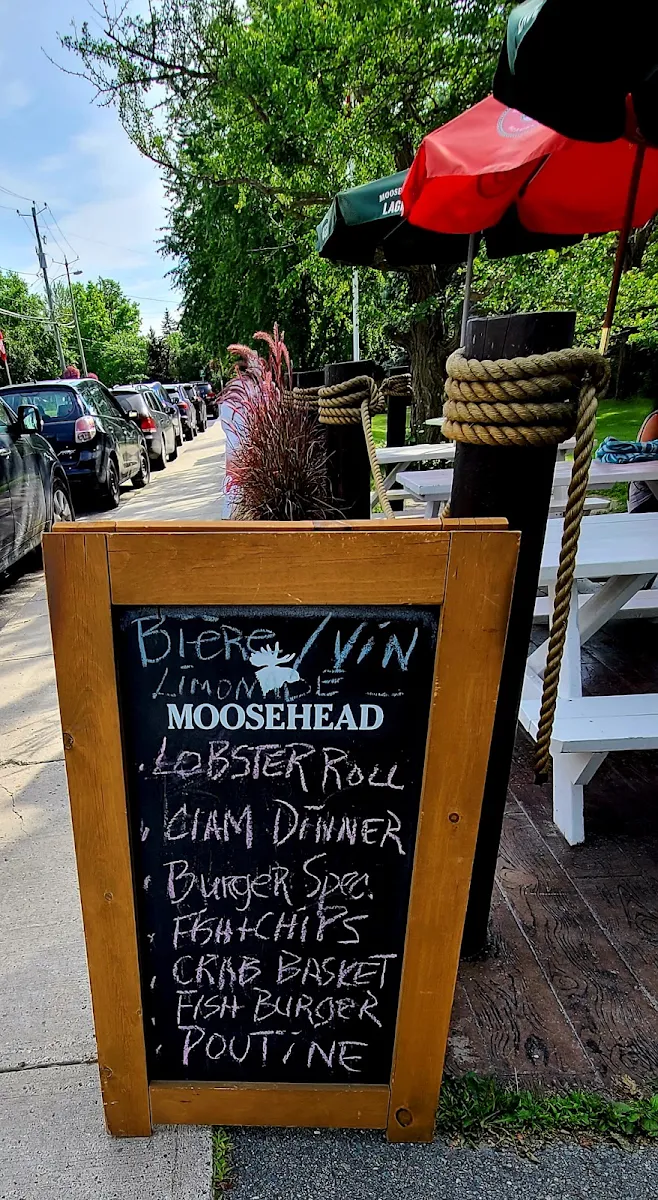 MOOSEHEAD
LAGER
BIÈRE / VIN
LIMONADE
MOOSEHEAD
. LOBSTER ROLL
. CLAM DINNER
. Burger Spec.
. FISH + CHIPS
. CRAB BASKET
. FISH BURGER
. POUTINE